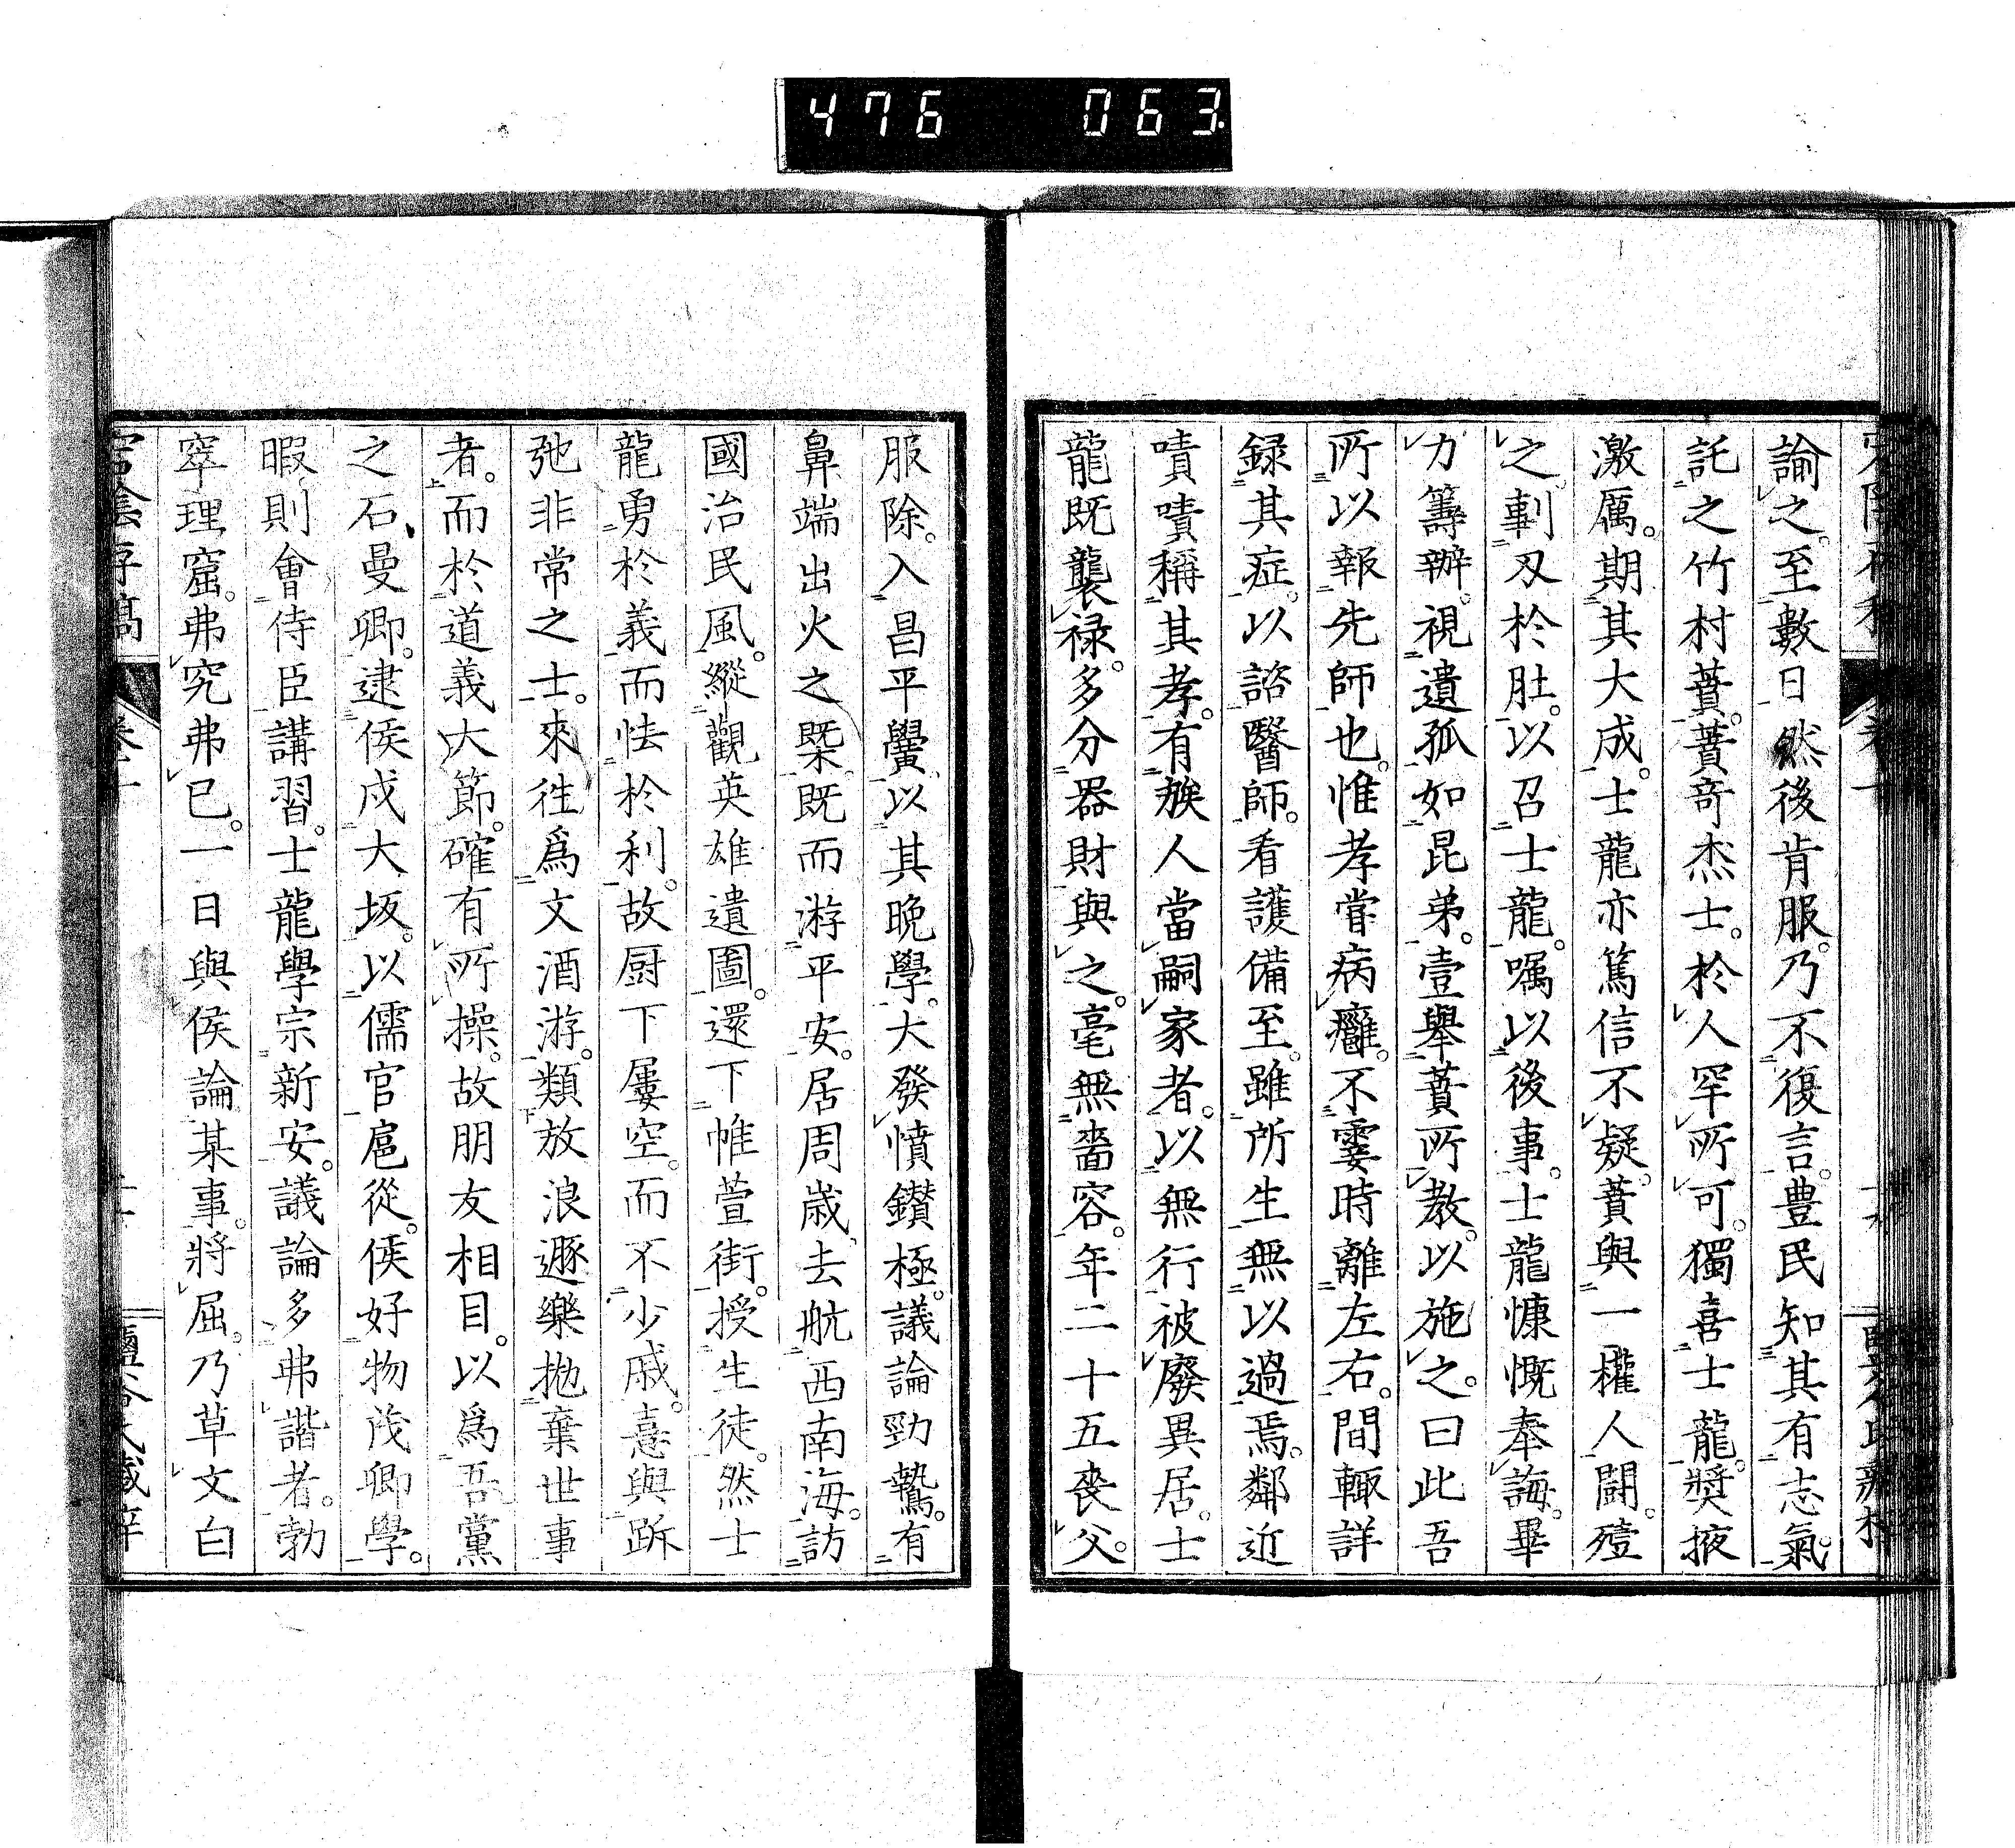 476 063
諭之。至數日然後肯服。乃不復言。豊民知其有志氣。
託之竹村蕡。蕡奇杰士。於人罕所可。獨喜士龍。奬掖
激厲。期其大成。士龍亦篤信不疑。蕡與一權人鬪。殪
之剚刃於肚。以召士龍。嘱以後事。士龍慷慨奉誨。畢
力籌辦。視遺孤如昆弟。壹舉蕡所教。以施之。曰此吾
所以報先師也。惟孝嘗病癰。不霎時離左右。間輙詳
録其症。以諮醫師。看護備至。雖所生無以過焉。鄰近
嘖嘖稱其孝。有族人當嗣家者。以無行被廢異居。士
龍既襲禄。多分器財與之。毫無嗇容。年二十五喪父。
服除。入昌平黌。以其晩學。大發憤鑽極。議論勁鷙。有
鼻端出火之槩。既而游平安。居周歳、去航西南海。訪
國治民風。縱觀英雄遺圖。還下帷萱街。授生徒。然士
龍勇於義。而怯於利。故厨下屢空。而不少戚。意與跅
弛非常之士。來往爲文酒游。類放浪遯樂拋棄世事
者。而於道義大節。確有所操。故朋友相目。以爲吾黨
之石曼卿。逮侯戍大坂。以儒官扈從。侯好物茂卿學。
暇則會侍臣講習。士龍學宗新安。議論多弗諧者。勃
窣理窟。弗究弗已。一日與侯論某事。將屈。乃草文白
宕陰存稿